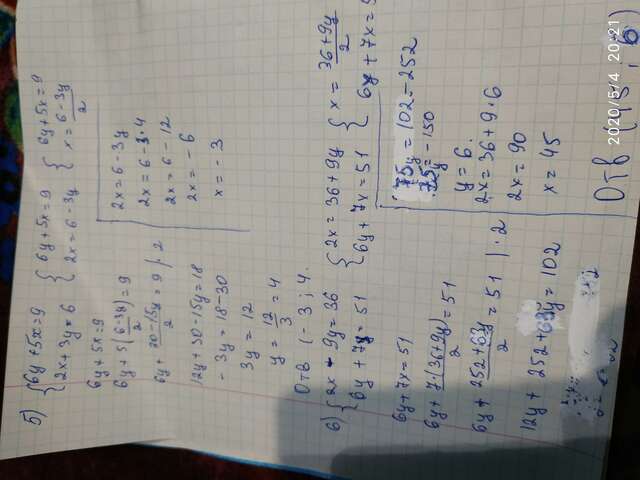 5) { 6y + 5x = 9
2x + 3y = 6
{ 6y + 5x = 9
2x = 6 - 3y
{ 6y + 5x = 9
x = 6 - 3y / 2
6y + 5x = 9
6y + 5(6 - 3y) / 2 = 9
6y + 30 - 15y / 2 = 9 | · 2
12y + 30 - 15y = 18
- 3y = 18 - 30
3y = 12
y = 12 / 3 = 4
2x = 6 - 3y
2x = 6 - 3 · 4
2x = 6 - 12
2x = - 6
x = - 3
Отв (- 3 ; 4.
6) { 2x - 9y = 36
6y + 7x = 51
{ 2x = 36 + 9y
6y + 7x = 51
{ x = 36 + 9y / 2
6y + 7x = 5
6y + 7x = 51
6y + 7(36 + 9y) / 2 = 51
6y + 252 + 63y / 2 = 51 | · 2
12y + 252 + 63y = 102
75y = 102 - 252
75y = - 150
y = 6
2x = 36 + 9 · 6
2x = 90
x = 45
Отв (45 ; 6)
2020/5/4 20:21